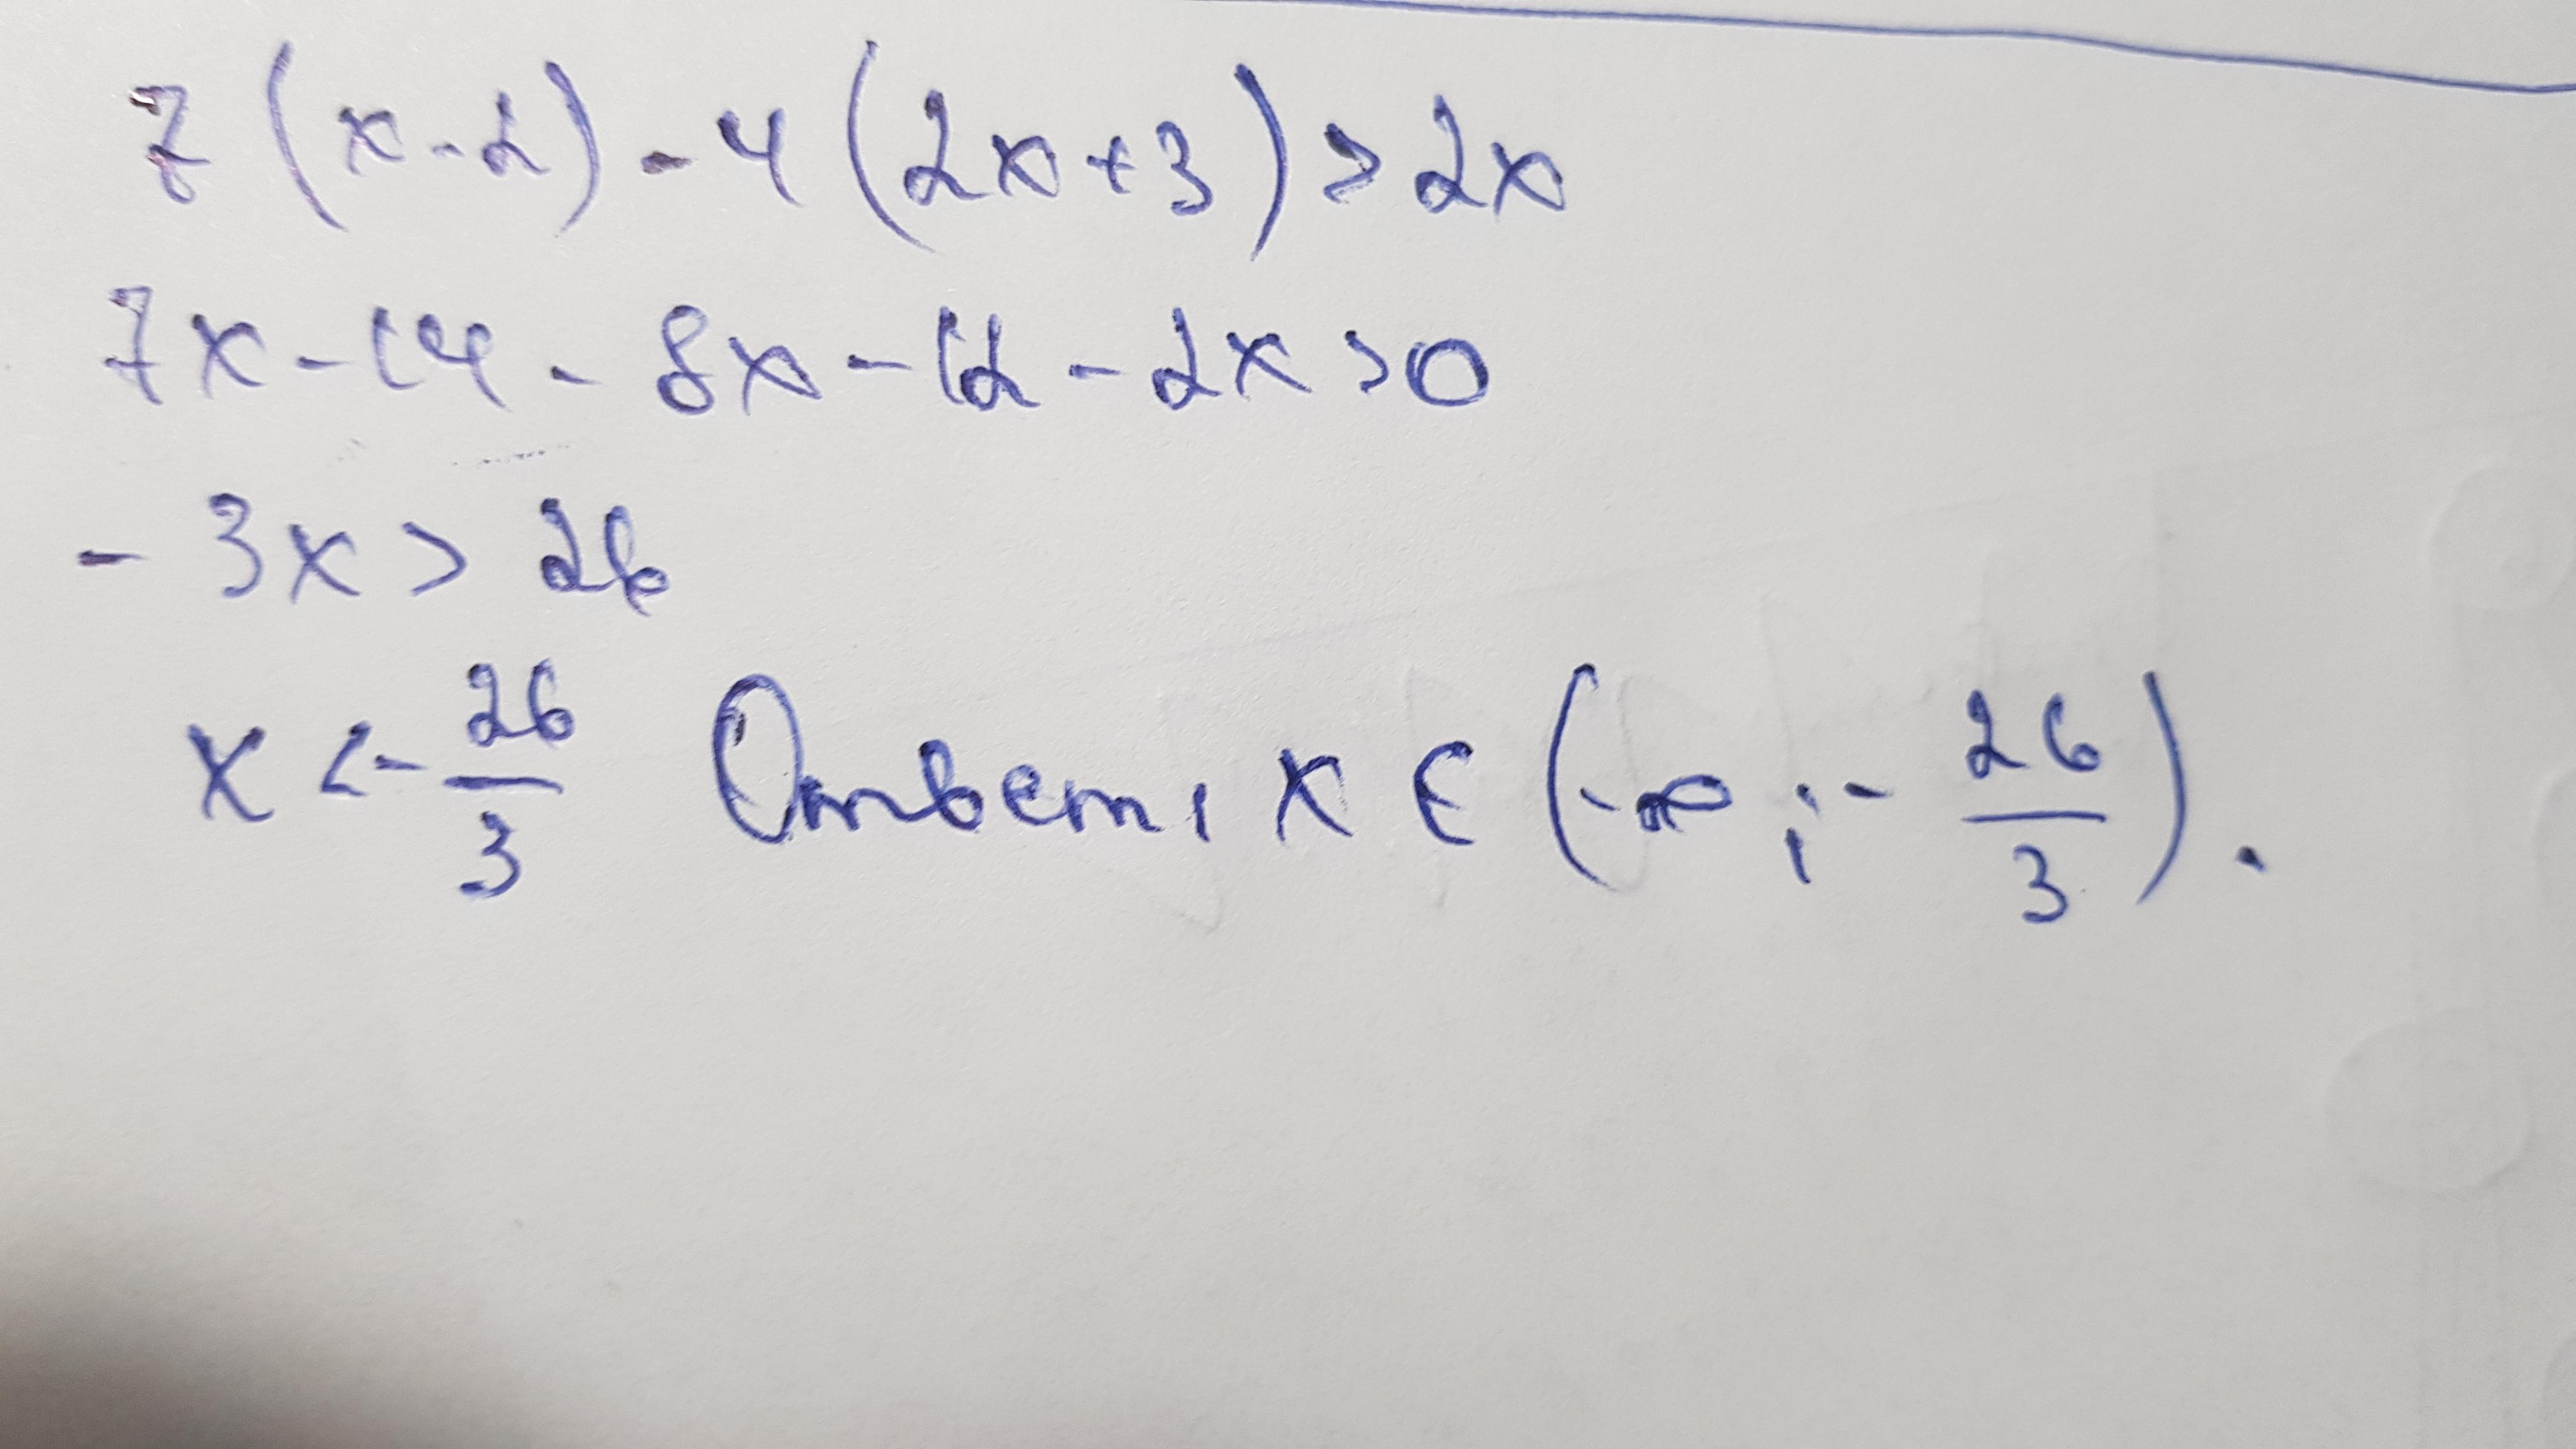 7(x-2)-4(2x+3)>2x
7x-14-8x-12-2x>0
-3x>26
x<-26/3 Ответ: x∈(-∞;-26/3).